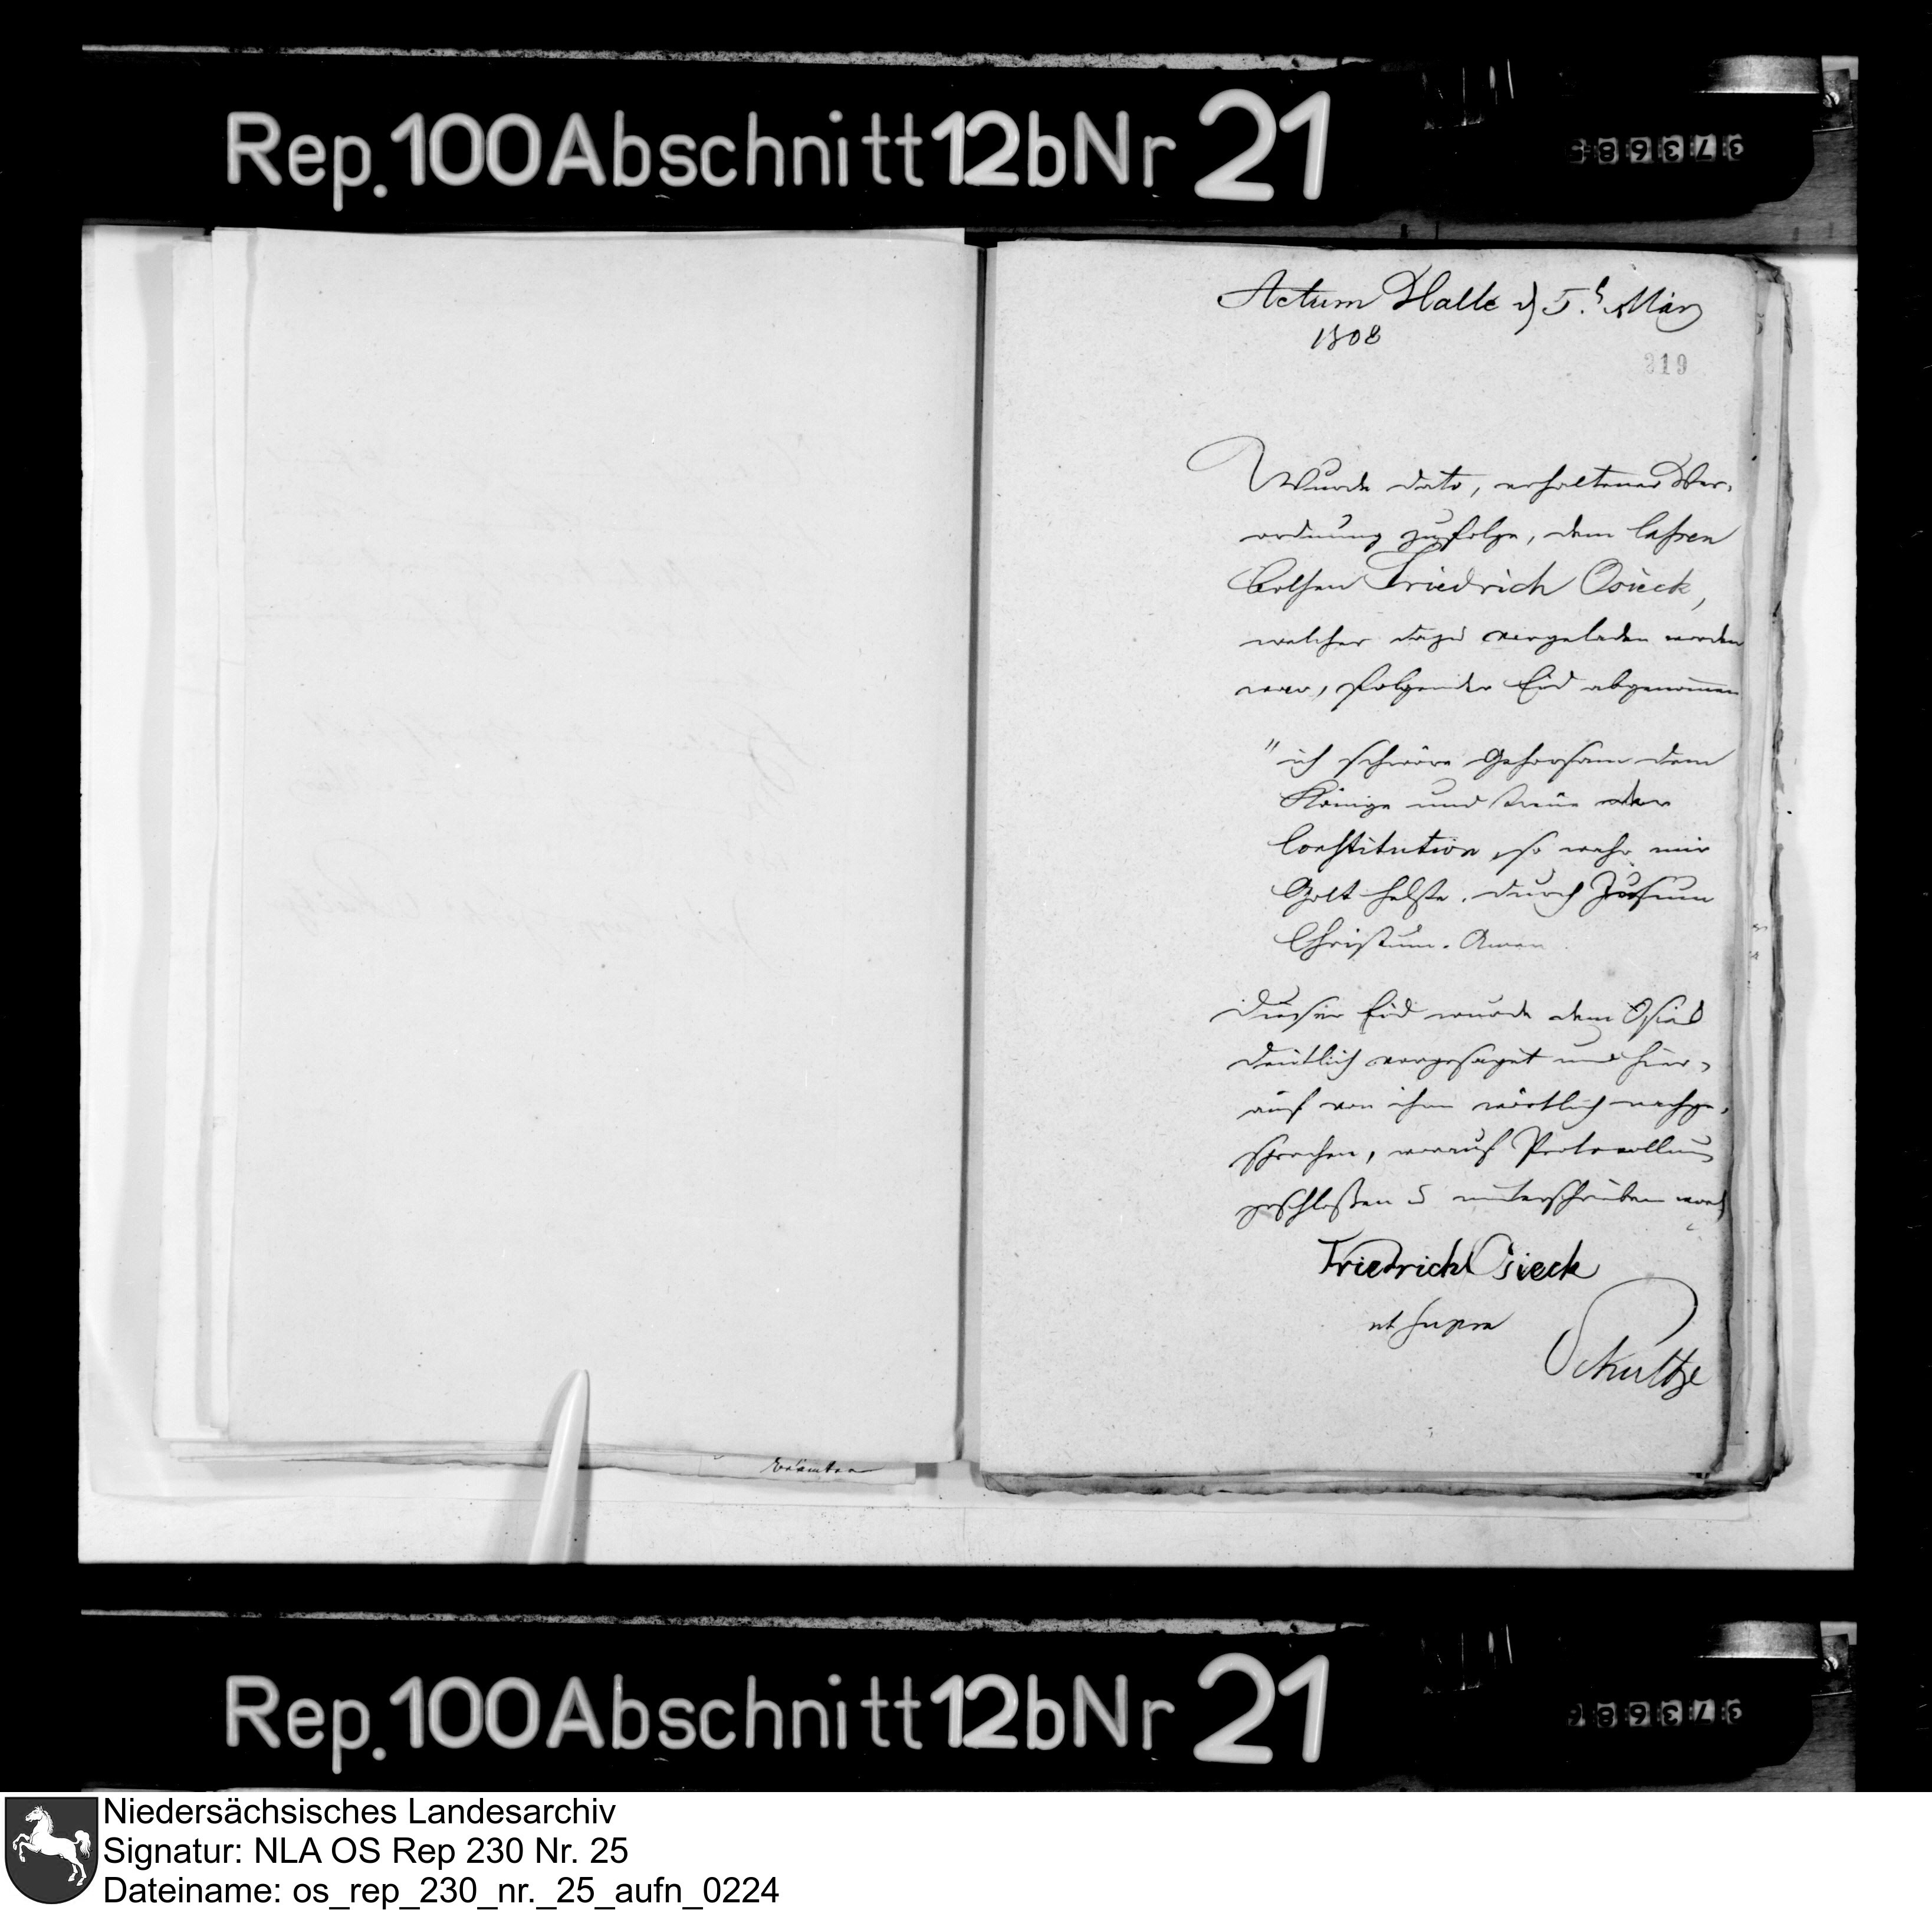 Rep.100Abschnitt12bNr 21
373685
Actum Halle d 5.t März
1808
319
Wurde dato, erhaltener Ver-
ordnung zufolge, dem Cassen
Bothen Friedrich Osieck,
welcher dazu vorgeladen worden
war, folgender Eid abgenommen
"ich schwöre Gehorsam dem
Könige und treue der
Constitution, so wahr mir
Gott helffe, durch Jesum
Christum. Amen.
Dieser Eid wurde dem Osieck
deutlich vorgesaget und hier-
auf von ihm wörtlich nachge-
sprochen, worauf Protocollum
geschloßen u unterschrieben word
Friedrich Osieck
ut supra
Schultze
Beamten
Rep.100Abschnitt12bNr 21
373686
Niedersächsisches Landesarchiv
Signatur: NLA OS Rep 230 Nr. 25
Dateiname: os_rep_230_nr._25_aufn_0224